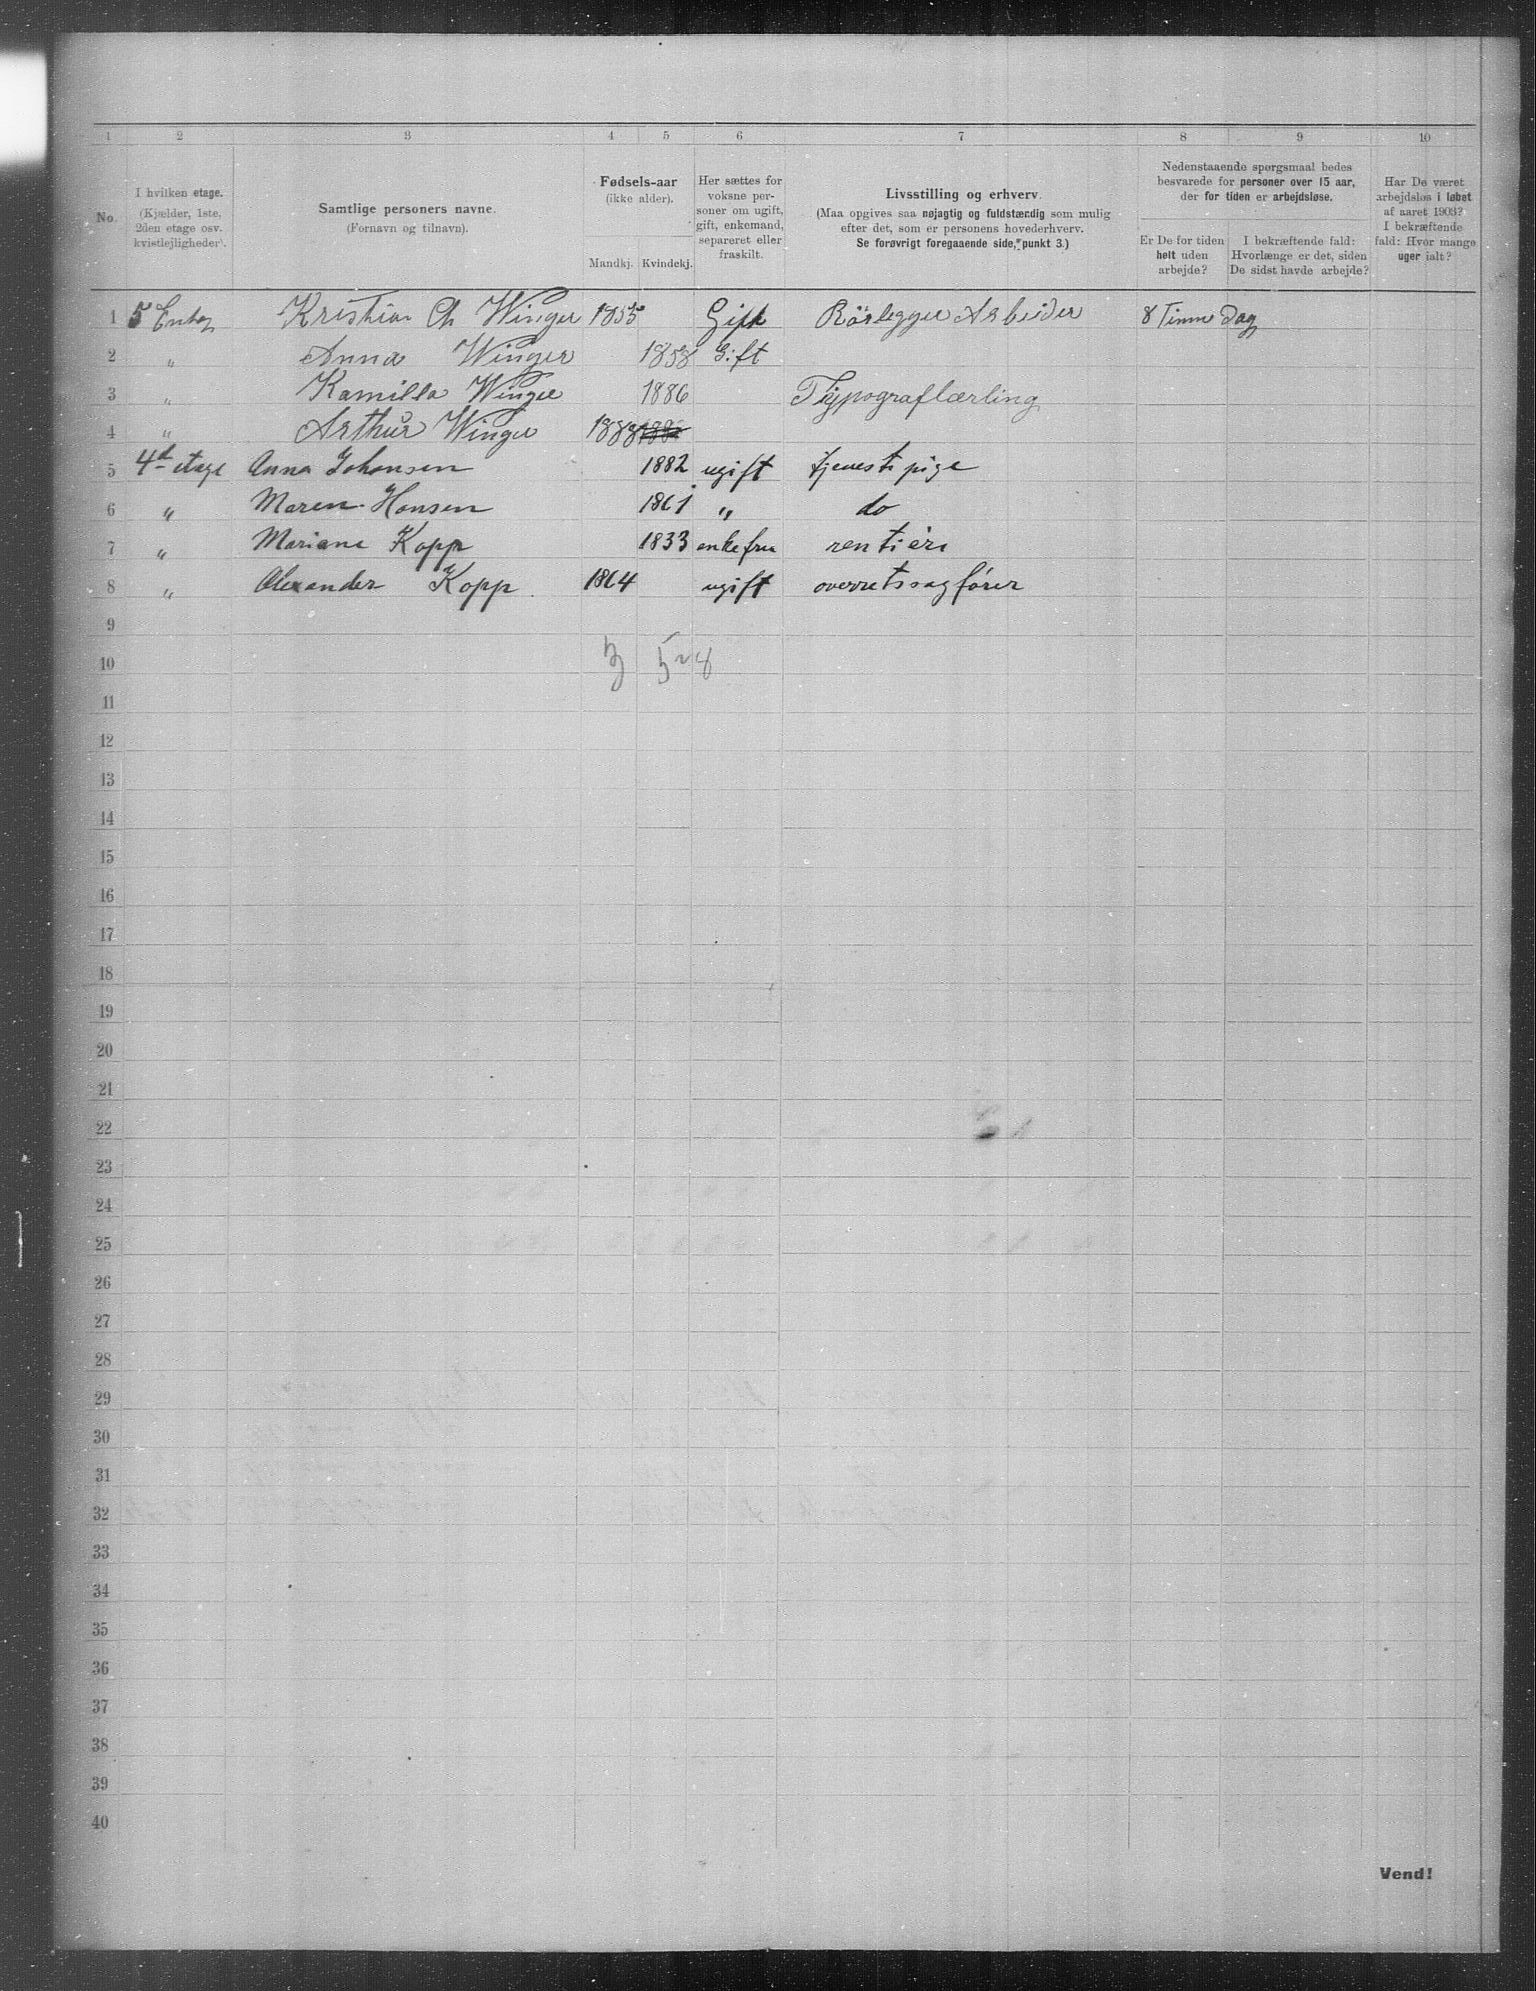 1 2 3 4 5 6 7 8 9 10
No.
I hvilken etage.
(Kjælder, 1ste,
2den etage osv.
kvistlejligheder).
Samtlige personers navne.
(Fornavn og tilnavn).
Fødsels-aar
(ikke alder).
Mandkj. Kvindekj.
Her sættes for
voksne per-
soner om ugift,
gift, enkemand,
separeret eller
fraskilt.
Livsstilling og erhverv.
(Maa opgives saa nøjagtig og fuldstændig som mulig
efter det, som er personens hovederhverv.
Se forøvrigt foregaaende side, punkt 3.)
Nedenstaaende spørgsmaal bedes
besvarede for personer over 15 aar,
der for tiden er arbejdsløse.
Er De for tiden
helt uden
arbejde?
I bekræftende fald:
Hvorlænge er det, siden
De sidst havde arbejde?
Har De været
arbejdsløs i løbet
af aaret 1903?
I bekræftende
fald: Hvor mange
uger ialt?
1 5 Kristian Ch Winger 1855 Gift Rörlegger Arbeider 8 Timer Dag
2 " Anna Winger 1858 Gift
3 " Kamilla Winger 1886 Typograflærling
4 " Arthur Winger 1888
5 4d etage Anna Johansen 1882 ugift tjenestepige
6 " Maren Hansen 1861 " do
7 " Mariane Kopp 1833 enkefru rentière
8 " Alexander Kopp 1864 ugift overretssagfører
9
10 3 5 - 8
11
12
13
14
15
16
17
18
19
20
21
22
23
24
25
26
27
28
29
30
31
32
33
34
35
36
37
38
39
40
Vend!